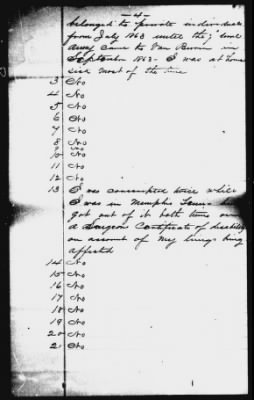 -4-
belonged to private individuals
from July 1863 until the "
Army came to Van Buren in
September 1863 - I was at home
sick most of the time
3 No
4 No
5 No
6 No
7 No
8 No
9 No
10 No
11 No
12 No
13 I was conscripted twice while
I was in Memphis Tenn - 
got out of it both times on
a Surgeons Certificate of disability
on account of my lungs being
affected
14 No
15 No
16 No
17 No
18 No
19 No
20 No
21 No